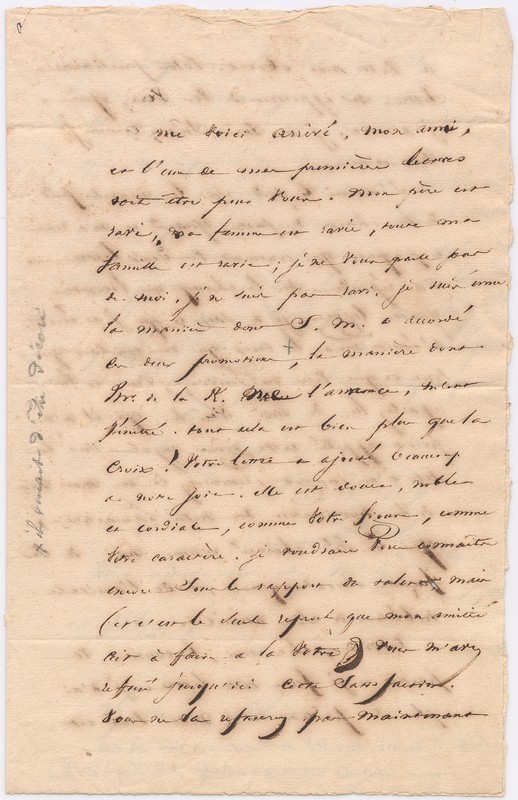 me voici arrivé, mon ami,
et l'une de mes premières lettres
doit être pour vous. Mon père est
ravi, ma femme est ravie, toute ma
famille est ravie ; je ne vous parle pas
de moi, je ne suis pas ravi. je suis ému.
la manière dont S. M. a accordé
ces deux promotions +, la manière dont
Mr. de la R. me l'annonce, m'ont
pénétré. tout cela est bien plus que la
croix ! Votre lettre a ajouté beaucoup
à notre joie. elle est douce, noble
et cordiale, comme votre figure, comme
votre caractère. je voudrais vous connaître
encore sous le rapport du talent, mais
(et c'est le seul reproche que mon amitié
ait à faire à la vôtre) vous m'avez
refusé jusqu'ici cette satisfaction.
vous ne la refuserez pas maintenant
+ et